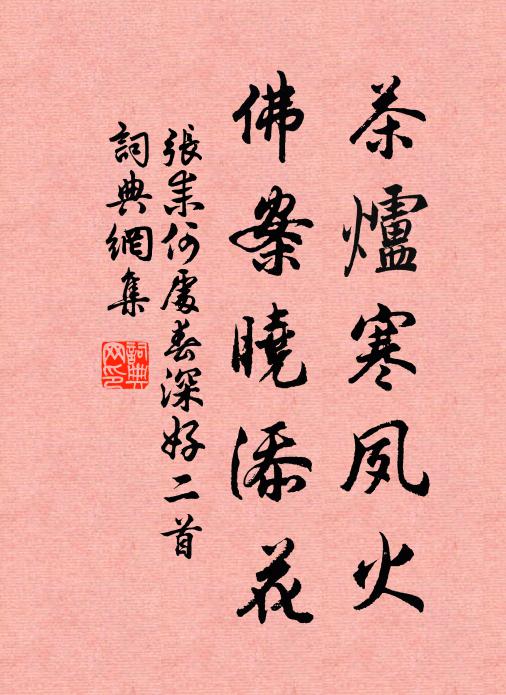 茶爐寒夙火
佛案曉添花
張耒何處春深好二首
詞典網集
詞典網印